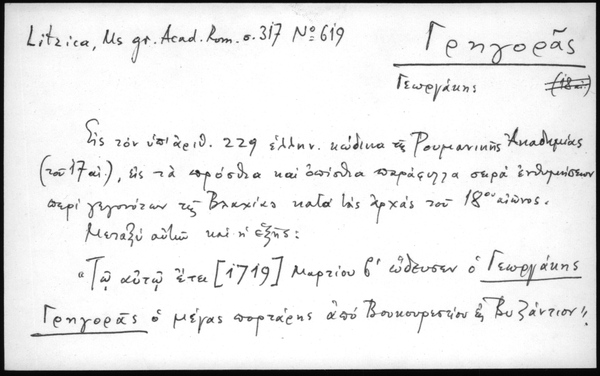 Litzica, Ms gr. Acad. Rom. σ. 317 Nº 619
Γρηγορᾶς
Γεωργάκης
(18 αἰ.)
Εἰς τὸν ὑπ' ἀριθ. 229 ἑλλην. κώδικα τῆς Ρουμανικῆς Ἀκαδημίας
(τοῦ 17 αἰ.), εἰς τὰ πρόσθια καὶ ὀπίσθια παράφυλλα σειρὰ ἐνθυμήσεων
περὶ γεγονότων τῆς Βλαχίας κατὰ τὰς ἀρχὰς τοῦ 18ου αἰῶνος.
Μεταξὺ αὐτῶν καὶ ἡ ἑξῆς:
"Τῷ αὐτῷ ἔτει [1719] Μαρτίου β' ὥδευσεν ὁ Γεωργάκης
Γρηγορᾶς ὁ μέγας πορτάρης ἀπὸ Βουκουρεστίου εἰς Βυζάντιον".